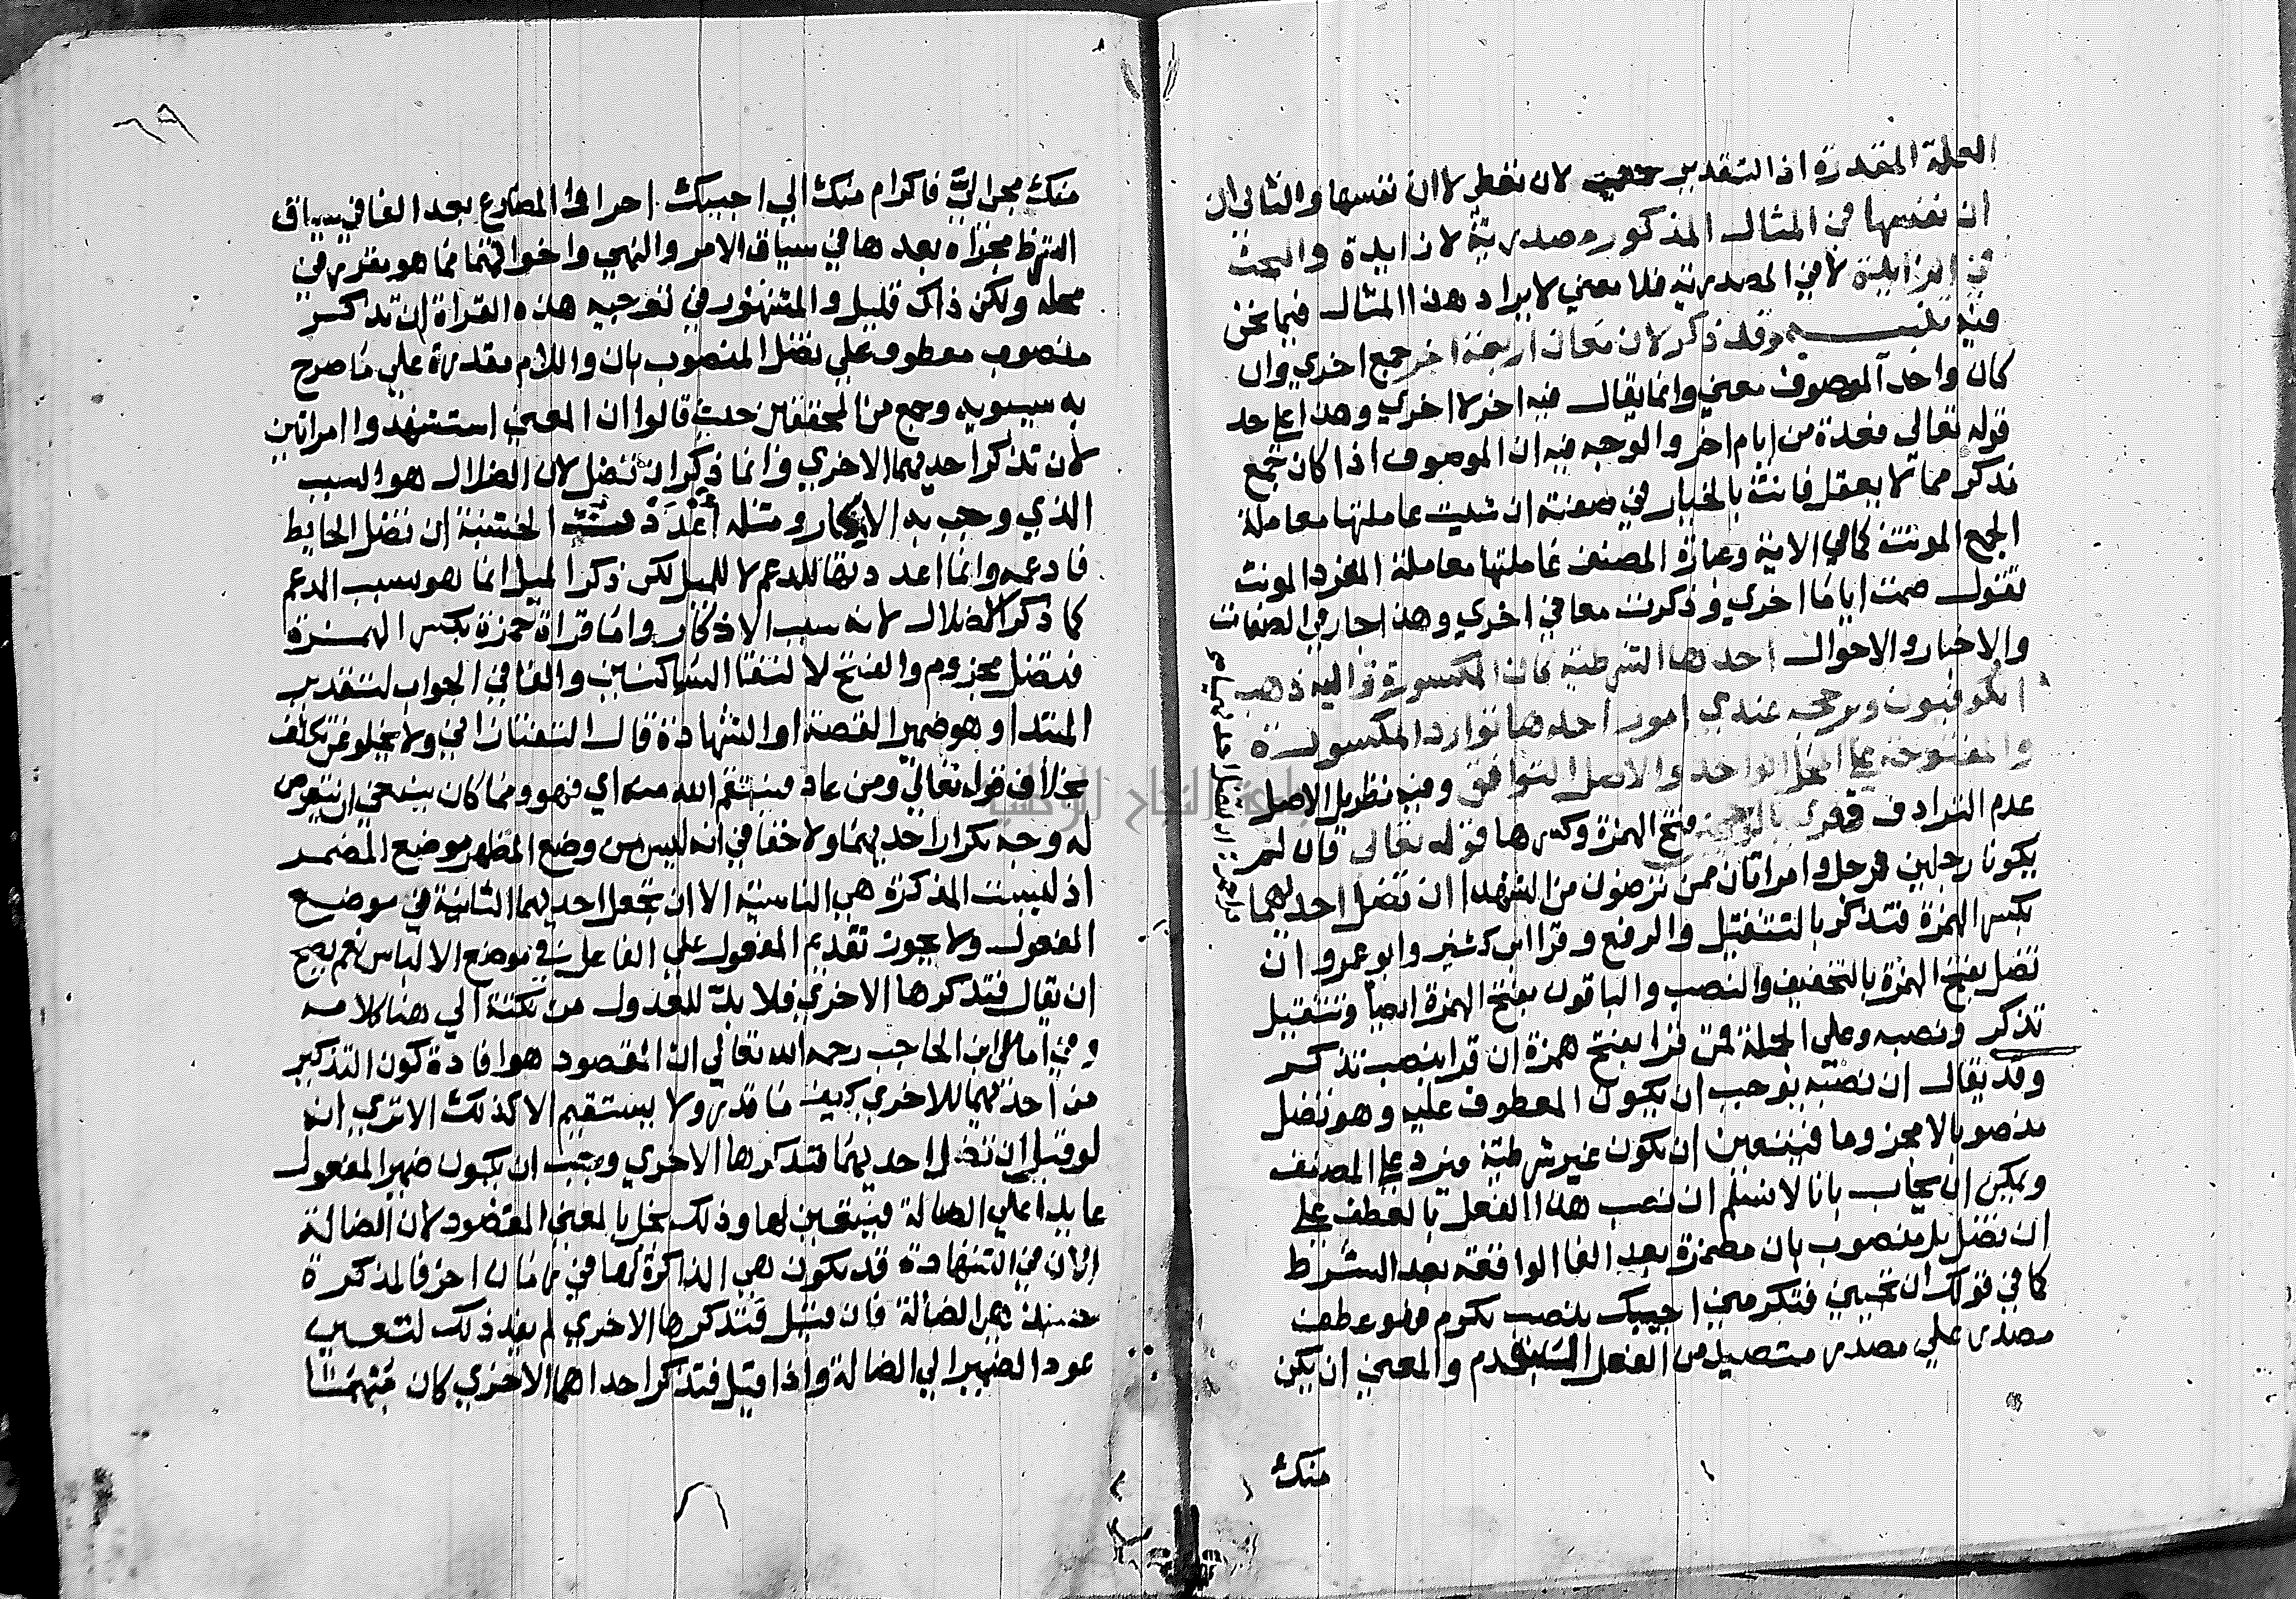 العلة المقدرة اذ التقدير لان تفطر لا ان نفسها والثاني ان
ان نفسها في المثال المذكور مصدرية لا زايدة والبحث
في الزايدة لا في المصدرية فلا معني لايراد هذا المثال فيما نحن
فيه تنبيه وقد ذكر لان معان اربعة اخر جمع اخري وان
كان واحد الموصوف معني وانما يقال فيه اخر لا اخري وهذا علي حد
قوله تعالي فعدة من ايام اخر والوجه فيه ان الموصوف اذا كان جمع
مذكر مما لا يعقل فانت بالخيار في صفته ان شيت عاملتها معاملة
الجمع المونث كما في الاية وعبارة المصنف عاملتها معاملة المفرد المونث
تقول صمت اياما اخري وذكرت معاني اخري وهذا جار في الصفات
والاخبار والاحوال احدها الشرطية كان المكسورة واليه ذهب
الكوفيون ويرجحه عندي امور احدها توارد المكسورة
والمفتوحة علي المحل الواحد والاصل التوافق وفيه نظر بل الاصل
عدم الترادف فقري بالوجهين فتح الهمزة وكسرها قوله تعالي فان لم
يكونا رجلين فرجل وامراتان ممن ترضون من الشهدا ان تضل احديهما
بكسر الهمزة فتذكر بالتثقيل والرفع وقرا ابن كثير وابو عمرو ان
تضل بفتح الهمزة بالتخفيف والنصب والباقون بفتح الهمزة ايضا وتثقيل
تذكر ونصبه وعلي الجملة فمن قرا بفتح همزة ان قرا بنصب تذكر
وقد يقال ان نصبه يوجب ان يكون المعطوف عليه وهو تضل
منصوبا لا مجزوما فيتعين ان تكون غير شرطية فيرد علي المصنف
ويمكن ان يجاب بانا لا نسلم ان نصب هذا الفعل بالعطف علي
ان تضل بل منصوب بان مضمرة بعد الفا الواقعة بعد الشرط
كما في قولك ان تجيني فتكرمني اجيبك بنصب تكرم فهو عطف
مصدر علي مصدر متصيد من الفعل المتقدم والمعني ان يكن
منك
٦٩
منك مجي الي فاكرام منك الي اجيبك اجرا في المضارع بعد الفا في سياق
الشرط مجراه بعدها في سياق الامر والنهي واخواتهما مما هو مقرر في
محله ولكن ذاك قليل والمشهور في توجيه هذه القراة ان تذكر
منصوب معطوف علي تضل المنصوب بان واللام مقدرة علي ما صرح
به سيبويه وجمع من المحققين حيث قالوا ان المعني استشهدوا امراتين
لان تذكر احديهما الاخري وانما ذكر ان تضل لان الضلال هو السبب
الذي وجب به الاذكار ومثله اعددت الخشبة ان تضل الحايط
فادعمه وانما اعددتها للدعم لا للميل لكن ذكر الميل انما هو لسبب الدعم
كما ذكر الضلال لانه سبب الاذكار واما قراة حمزة بكسر الهمزة
فتضل مجزوم والفتح لالتقا الساكنين والفا في الجواب لتقدير
المبتدا وهو ضمير القصة او الشهادة قال التفتازاني ولا يخلو عن تكلف
بخلاف قوله تعالي ومن عاد فينتقم الله منه اي فهو ومما كان ينبغي ان يتعرض
له وجه تكرار احديهما ولا خفا في انه ليس من وضع المظهر موضع المضمر
اذ ليست المذكرة هي الناسية الا ان تجعل احديهما الثانية في موضع
المفعول ولا يجوز تقديم المفعول علي الفاعل في موضع الالباس نعم يصح
ان يقال فتذكرها الاخري فلا بد للعدول من نكتة الي هنا كلامه
وفي امالي ابن الحاجب رحمه الله تعالي ان المقصود هو افادة كون التذكير
من احديهما للاخري كيف ما قدر ولا يستقيم الا كذلك الا تري انه
لو قيل ان تضل احديهما فتذكرها الاخري وجب ان يكون ضمير المفعول
عايدا علي الضالة فيتعين لها وذلك يخل بالمعني المقصود لان الضالة
الان في الشهادة قد تكون هي الذاكرة لها في زمان اخر فالمذكرة
حينئذ هي الضالة فان قيل فتذكرها الاخري لم يفد ذلك لتعيين
عود الضمير الي الضالة واذا قيل فتذكر احداهما الاخري كان مبهما